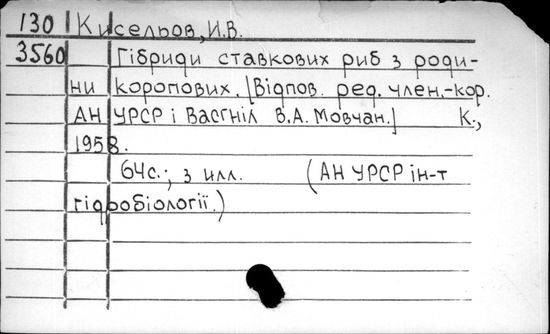 130 Кисельов, И.В.
3560 Гібриди ставкових риб з роди-
ни коропових. [Відпов. ред. член.-кор.
АН УРСР і Васгніл В.А. Мовчан.] К.,
1958.
64с.; з илл. (АН УРСР ін-т
гідробіології.)